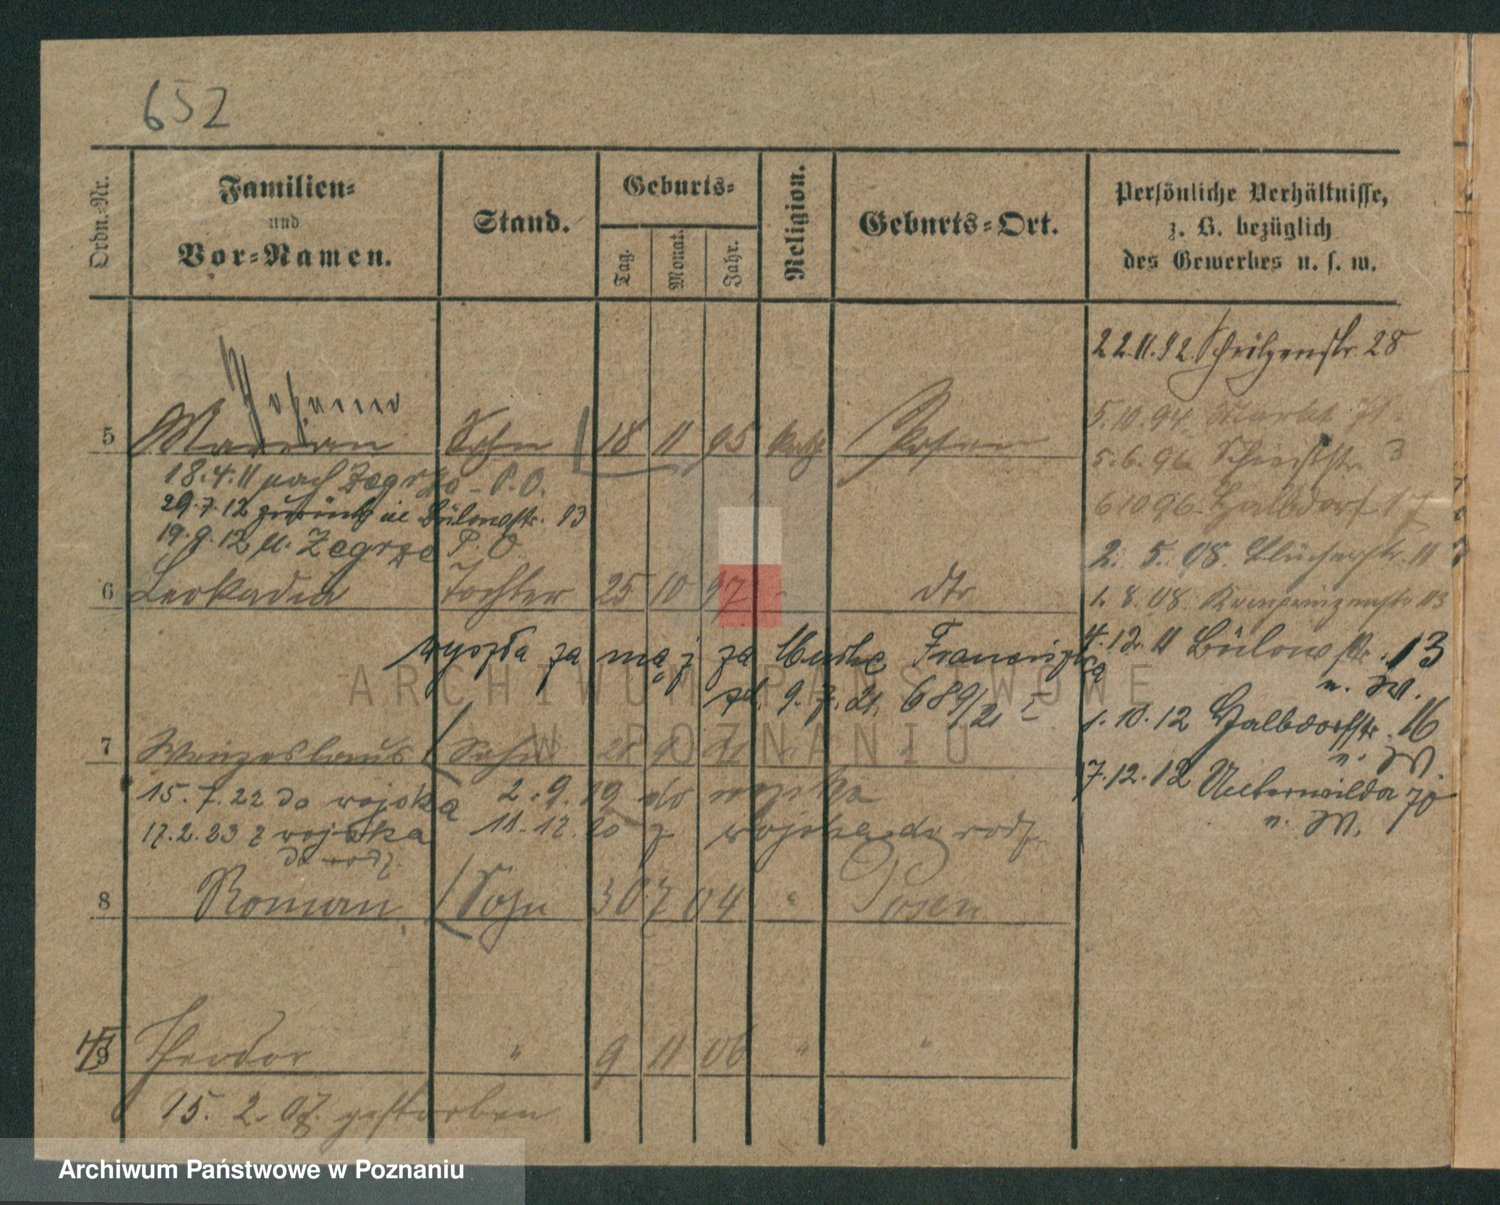 652
Ordn.-Nr.
Familien-
und
Vor-Namen.
Stand.
Geburts-
Tag.
Monat.
Jahr.
Religion.
Geburts-Ort.
Persönliche Verhältnisse,
z. B. bezüglich
des Gewerbes u. s. w.
22.11.92. Schützenstr. 28
5 Marian Sohn 18 11 95 kath Posen
5.10.94. Markt
18.4.11 nach Zegrze - P.O.
5.6.96 3
29.7.12 zurück Bülowstr. 13
6 10 96. Halbdorf 17
19.9.12 n. Zegrze P. O
2. 5. 08. Blücherstr. 11
6 Leokadia Tochter 25 10 97 dto
1. 8. 08. Kronprinzenstr 113
wyszła za mąż za Franciszka
4.12.11 Bülowstr. 13
n. W.
9.7.21. 689/21
1.10.12 Halbdorfstr. 16
n. W.
7 Wenzeslaus Sohn 28 9
15.7.22 do wojska 2.9.19 do wojska
17.12.12 Ueberwilda 70
n. W.
17.2.23 z wojska 11.12.20 z wojska do rodz.
do rodz.
8 Roman Sohn 30 7 04 " Posen
9 Theodor " 9 11 06 " "
15. 2. 07. gestorben
ARCHIWUM PAŃSTWOWE
W POZNANIU
Archiwum Państwowe w Poznaniu